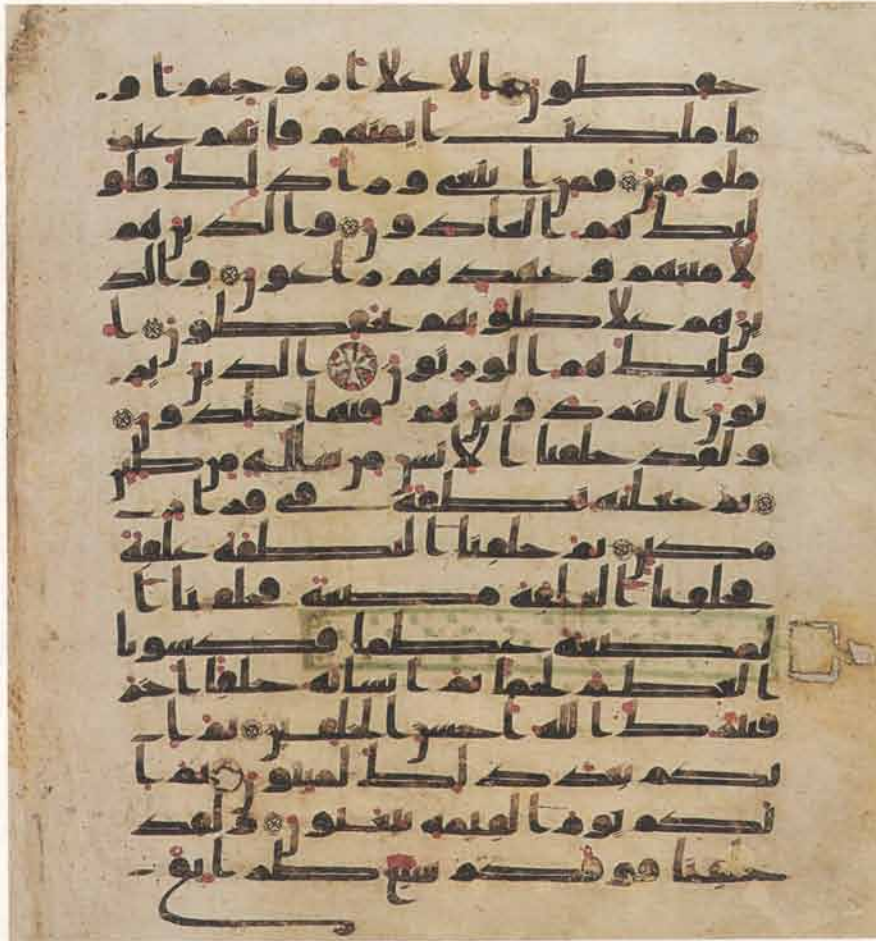 حفظون الا على ازوجهم او
ما ملكت ايمنهم فانهم غير
ملومين فمن ابتغى ورا ذلك فاو
ليك هم العادون والذين هم
لامنتهم وعهدهم رعون والذ
ين هم على صلوتهم يحفظون ا
وليك هم الورثون الذين ير
ثون الفردوس هم فيها خلدون
ولقد خلقنا الانسن من سللة من طين
ثم جعلنه نطفة في قرار
مكين ثم خلقنا النطفة علقة
فخلقنا العلقة مضغة فخلقنا ا
لمضغة عظما فكسونا
العظم لحما ثم انشانه خلقا اخر
فتبرك الله احسن الخلقين ثم ا
نكم بعد ذلك لميتون ثم ا
نكم يوم القيمة تبعثون ولقد
خلقنا فوقكم سبع طرايق